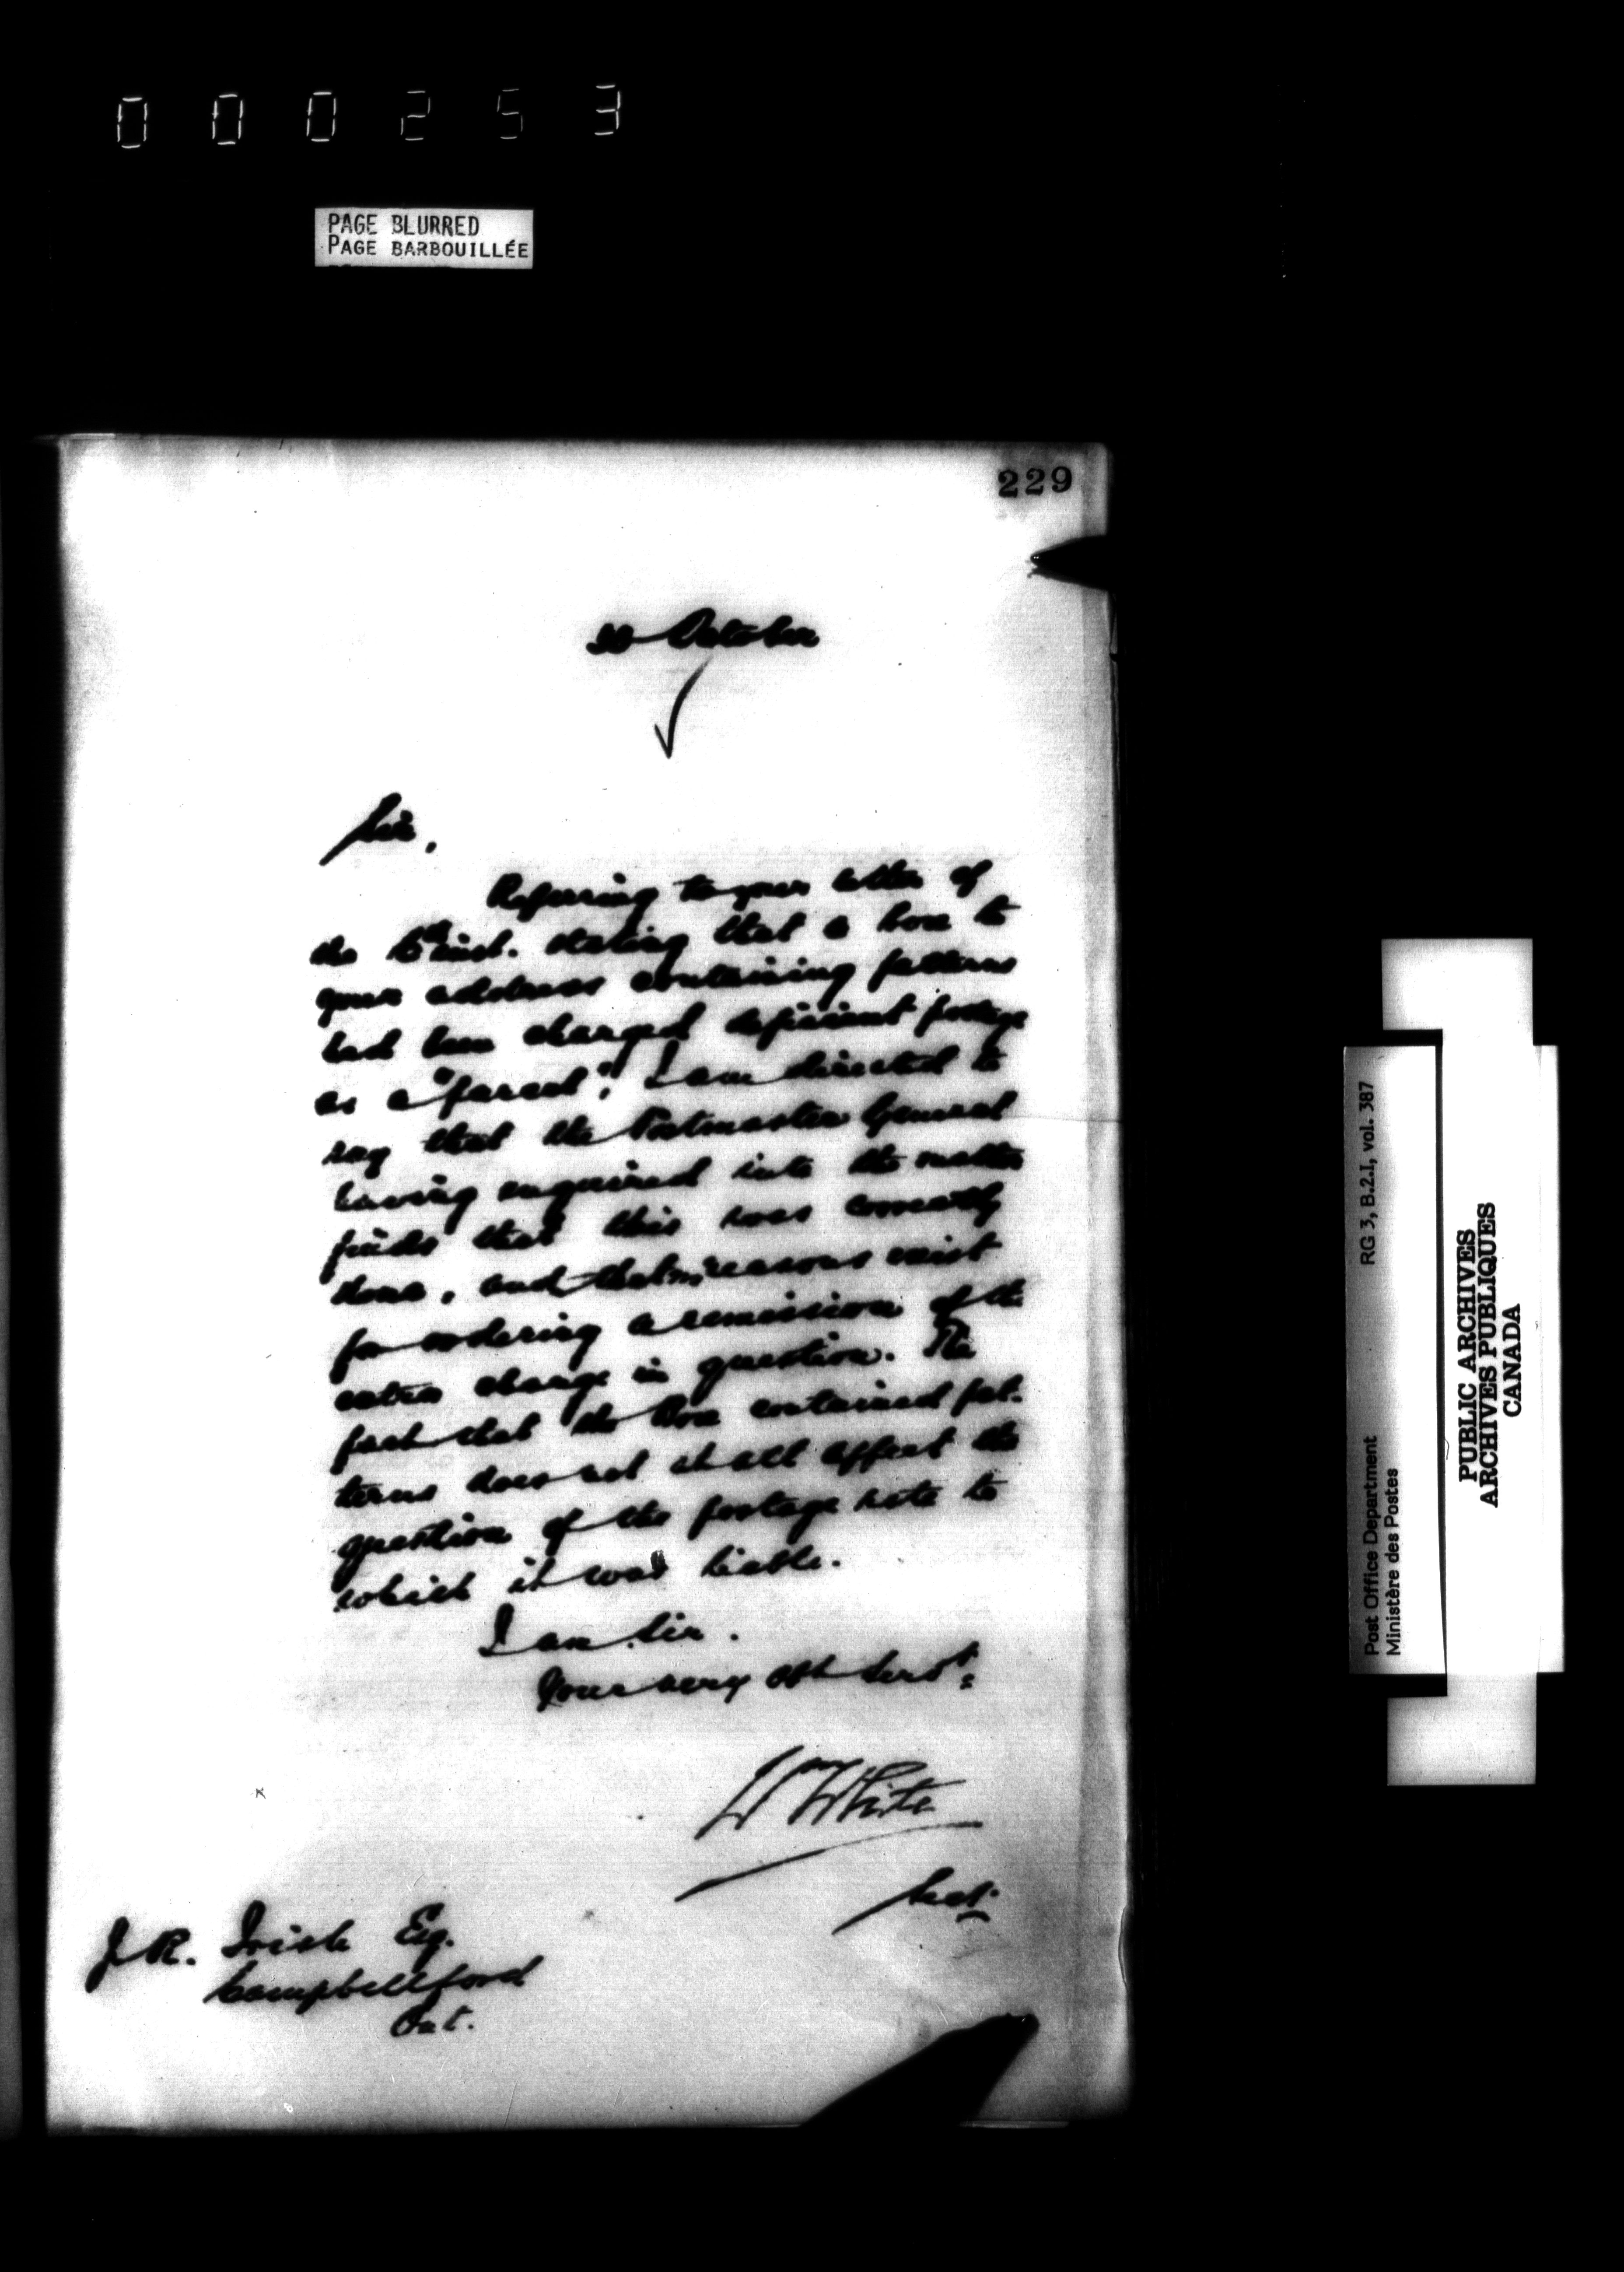 000253
PAGE BLURRED
PAGE BARBOUILLÉE
229
October
Sir,
Referring to your letter of
the inst. stating that a box to
your address containing patterns
had been charged deficient postage
as a "parcel", I am directed to
say that the Postmaster General
having enquired into the matter
finds that this was correctly
done, and that no reasons exist
for ordering a remission of the
extra charge in question. The
fact that the Box contained pat-
terns does not at all affect the
question of the postage rate to
which it was liable.
I am Sir.
Your very Obt Servt.
Wm White
Sect.
J.R. Irish Esq.
Campbellford
Ont.
Post Office Department RG 3, B.2.I, vol. 387
Ministère des Postes
PUBLIC ARCHIVES
ARCHIVES PUBLIQUES
CANADA